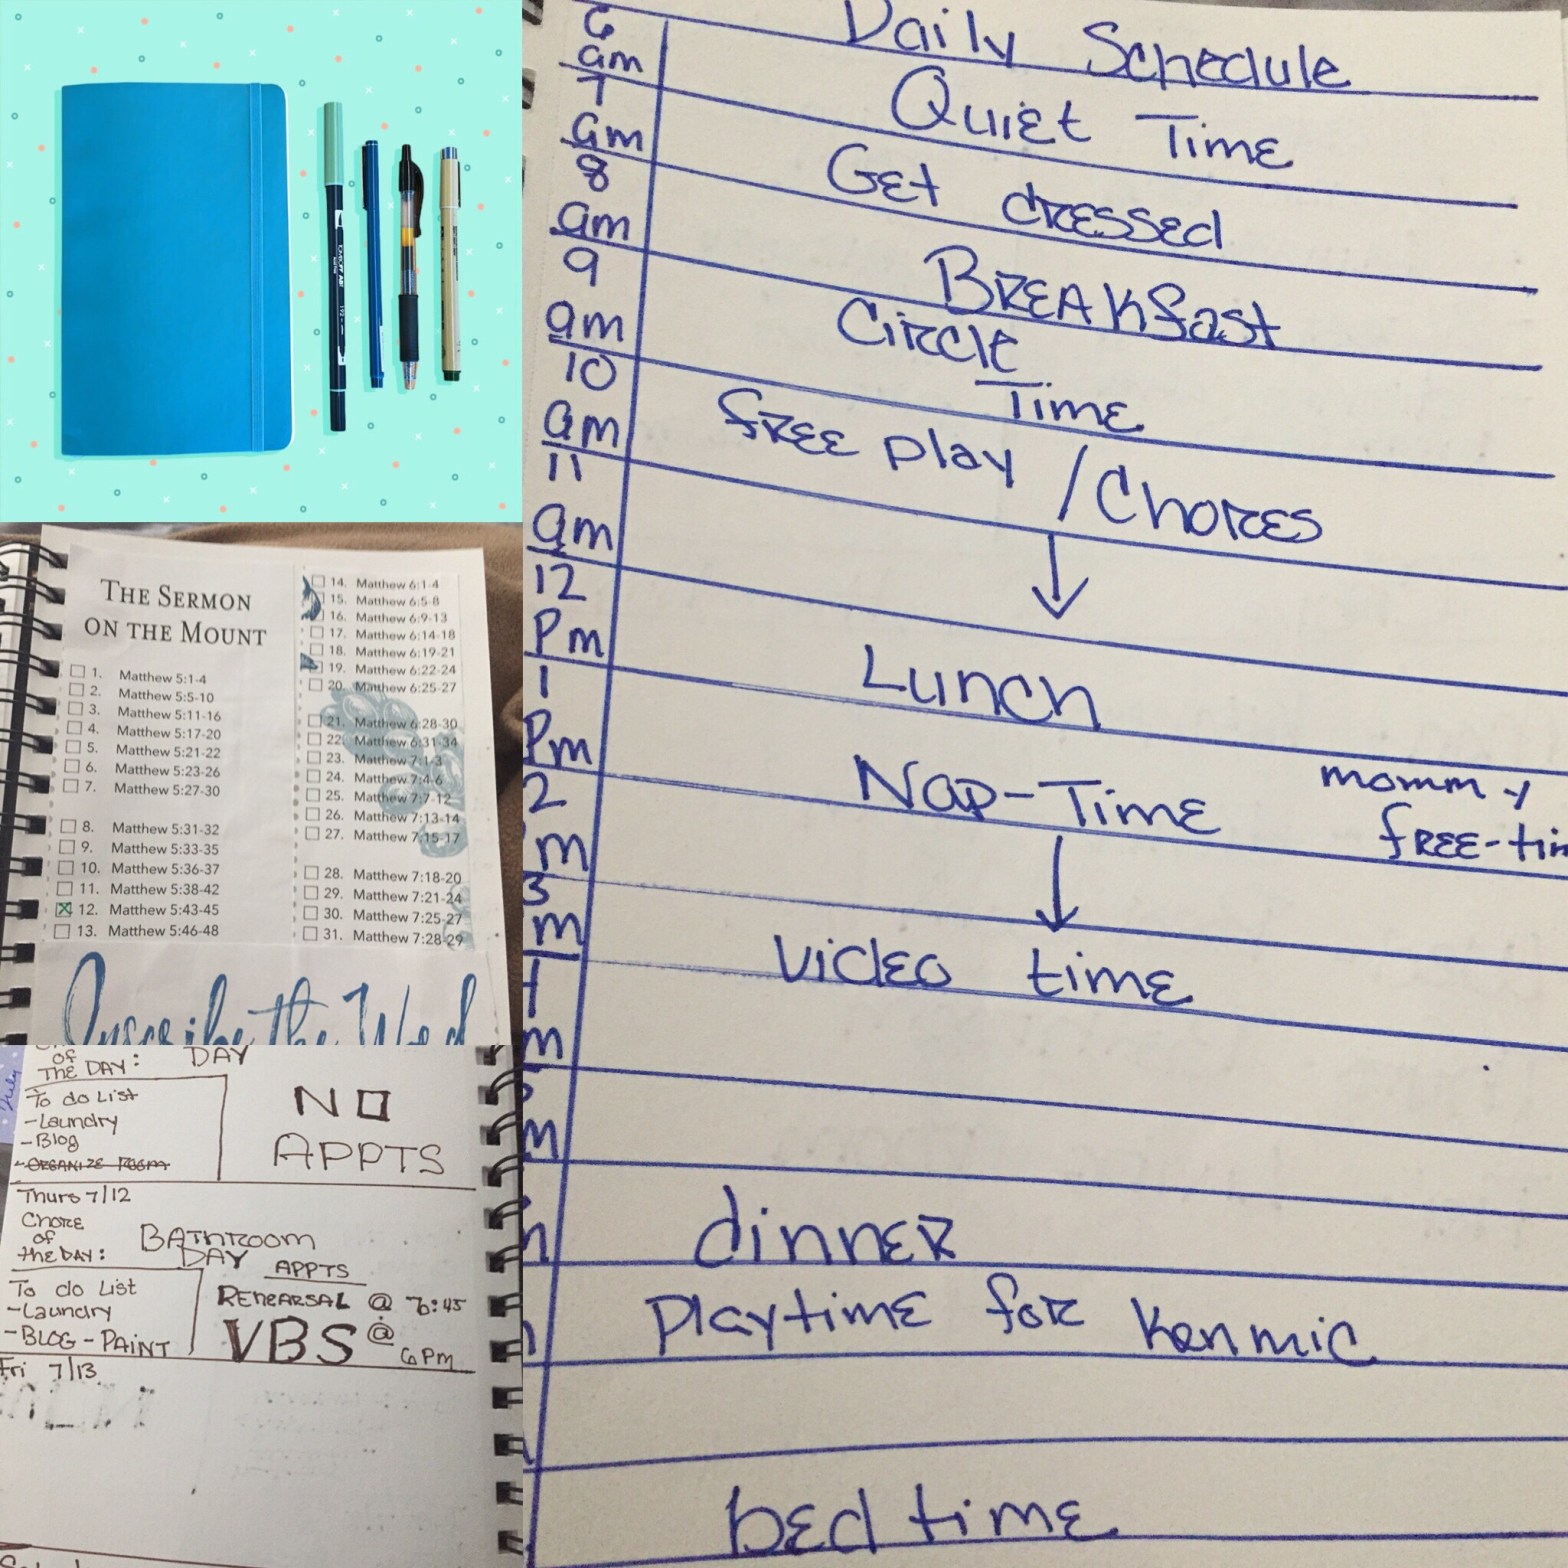 THE SERMON
ON THE MOUNT
1. Matthew 5:1-4
2. Matthew 5:5-10
3. Matthew 5:11-16
4. Matthew 5:17-20
5. Matthew 5:21-22
6. Matthew 5:23-26
7. Matthew 5:27-30
8. Matthew 5:31-32
9. Matthew 5:33-35
10. Matthew 5:36-37
11. Matthew 5:38-42
12. Matthew 5:43-45
13. Matthew 5:46-48
14. Matthew 6:1-4
15. Matthew 6:5-8
16. Matthew 6:9-13
17. Matthew 6:14-18
18. Matthew 6:19-21
19. Matthew 6:22-24
20. Matthew 6:25-27
21. Matthew 6:28-30
22. Matthew 6:31-34
23. Matthew 7:1-3
24. Matthew 7:4-6
25. Matthew 7:7-12
26. Matthew 7:13-14
27. Matthew 7:15-17
28. Matthew 7:18-20
29. Matthew 7:21-24
30. Matthew 7:25-27
31. Matthew 7:28-29
Inscribe the Word
July
OF
THE DAY: DAY
To do List
-Laundry
-Blog
-ORGANIZE ROOM
NO
APPTS
Thurs 7/12
CHORE
OF
the DAY:
BATHROOM
DAY
To do List
-Laundry
-BLOG-PAINT
APPTS
REHEARSAL @
VBS @
6PM
Fri 7/13
Daily Schedule
6 am Quiet Time
7 am Get dressed
8 am BREAKfast
9 am Circle
Time
10 am fREE play / ChORES
11 am ↓
12 Pm Lunch
1 Pm Nap-Time mommy
fREE-tim
2 m ↓
3 m Video time
m
m
dinnER
Playtime for Kenmic
bedtime